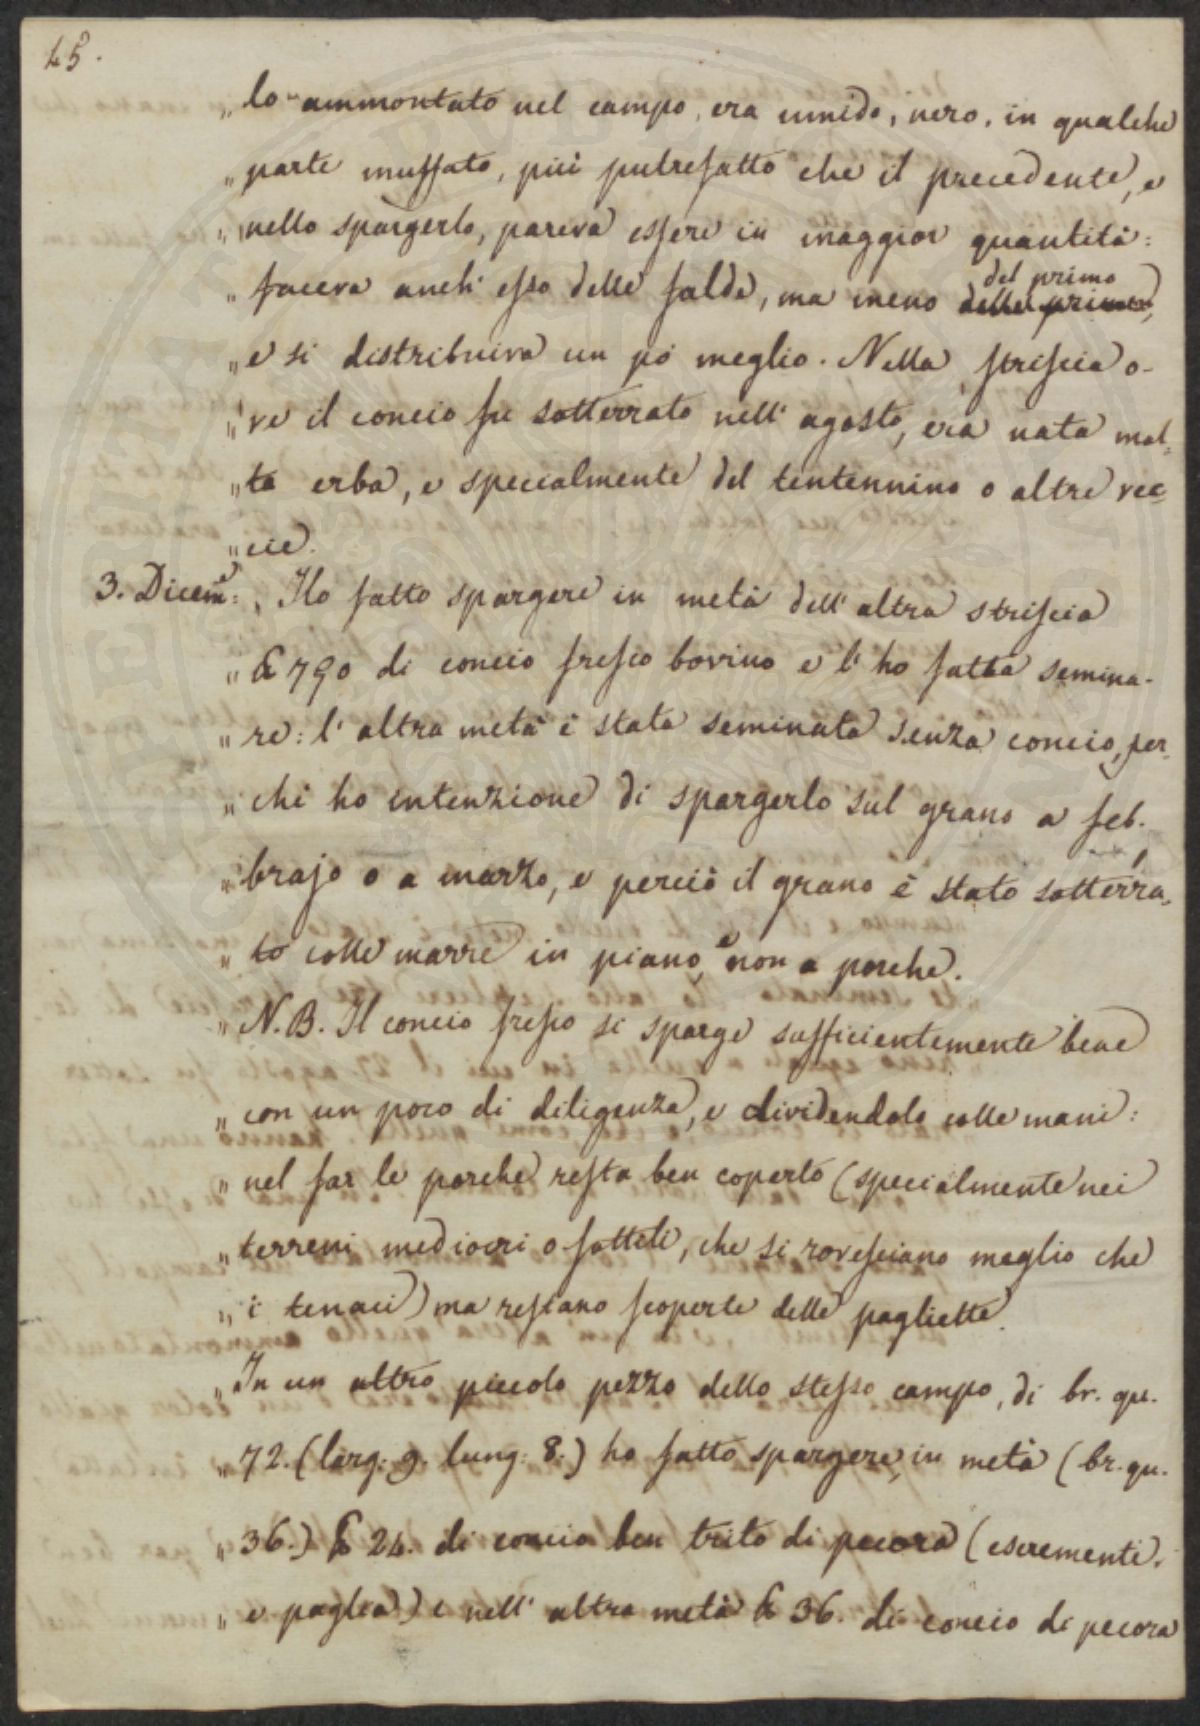 45.
„ lo ammontato nel campo, era umido, nero, in qualche
„ parte muffato, più putrefatto che il precedente, e
„ nello spargerlo, pareva essere in maggior quantità:
„ faceva anch' esso delle falde, ma meno delle prime, del primo
„ e si distribuiva un pò meglio. Nella striscia o-
„ ve il concio fu sotterrato nell' agosto, era nata mol-
„ ta erba, e specialmente del tentennino o altre vec-
„ cie.
3. Dicem: „ Ho fatto spargere in metà dell' altra striscia
„ ℔ 790 di concio fresco bovino e l' ho fatta semina-
„ re: l' altra metà è stata seminata senza concio, per-
„ chè ho intenzione di spargerlo sul grano a feb-
„ brajo o a marzo, e perciò il grano è stato sotterra-
„ to colle marre in piano, e non a porche.
„ N.B. Il concio fresco si sparge sufficientemente bene
„ con un poco di diligenza, e dividendolo colle mani:
„ nel far le porche resta ben coperto (specialmente nei
„ terreni mediocri o sottili, che si rovesciano meglio che
„ i tenaci) ma restano scoperte delle pagliette.
„ In un altro piccolo pezzo dello stesso campo, di br. qu.
„ 72. (larg: 9. lung: 8.) ho fatto spargere, in metà (br. qu.
„ 36.) ℔ 24. di concio ben trito di pecora (escrementi,
„ e paglia) e nell' altra metà ℔ 36. di concio di pecora